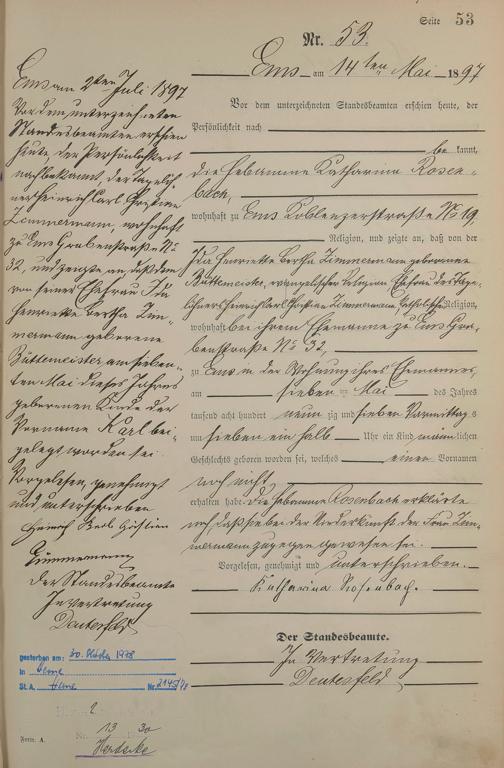 Seite 53
Nr. 53.
Ems am 14ten Mai 1897
Vor dem unterzeichneten Standesbeamten erschien heute, der
Persönlichkeit nach
be kannt,
die Hebamme Katharina Rosen-
bach,
wohnhaft zu Ems Koblenzerstraße No 19,
Religion, und zeigte an, daß von der
Ida Henriette Bertha Zimmermann geborene
Büttemeister, evangelischer Religion, Ehefrau des Tage-
löhners Heinrich Carl Christian Zimmermann, katholischer Religion,
wohnhaft bei ihrem Ehemanne zu Ems Gra-
benstraße No 32,
zu Ems in der Wohnung ihres Ehemannes,
am sieben ten Mai des Jahres
tausend acht hundert neun zig und sieben Vormittag s
um sieben ein halb Uhr ein Kind männ lichen
Geschlechts geboren worden sei, welches einen Vornamen
noch nicht
erhalten habe. Die Hebamme Rosenbach erklärte
noch, daß sie bei der Niederkunft der Frau Zim-
mermann zugegen gewesen sei.
Vorgelesen, genehmigt und unterschrieben.
Katharina Rosenbach.
Der Standesbeamte.
In Vertretung
Deutesfeld
Ems am 2ten Juli 1897
Vor dem unterzeichneten
Standesbeamten erschien
heute, der Persönlichkeit
nach bekannt, der Tagelöh-
ner Heinrich Carl Christian
Zimmermann, wohnhaft
zu Ems Grabenstraße No
32, und zeigte an, daß dem
von seiner Ehefrau Ida
Henriette Bertha Zim-
mermann geborene
Büttemeister am sieben-
ten Mai dieses Jahres
geborenen Kinde der
Vorname Karl bei-
gelegt worden sei.
Vorgelesen, genehmigt
und unterschrieben
Heinrich Karl Christian
Zimmermann
Der Standesbeamte
In Vertretung
Deutesfeld
gestorben am: 30. 1978
in Herne
St. A. Herne Nr. 2145/78
2
Nr. 13 30
Herdecke
Form. A.